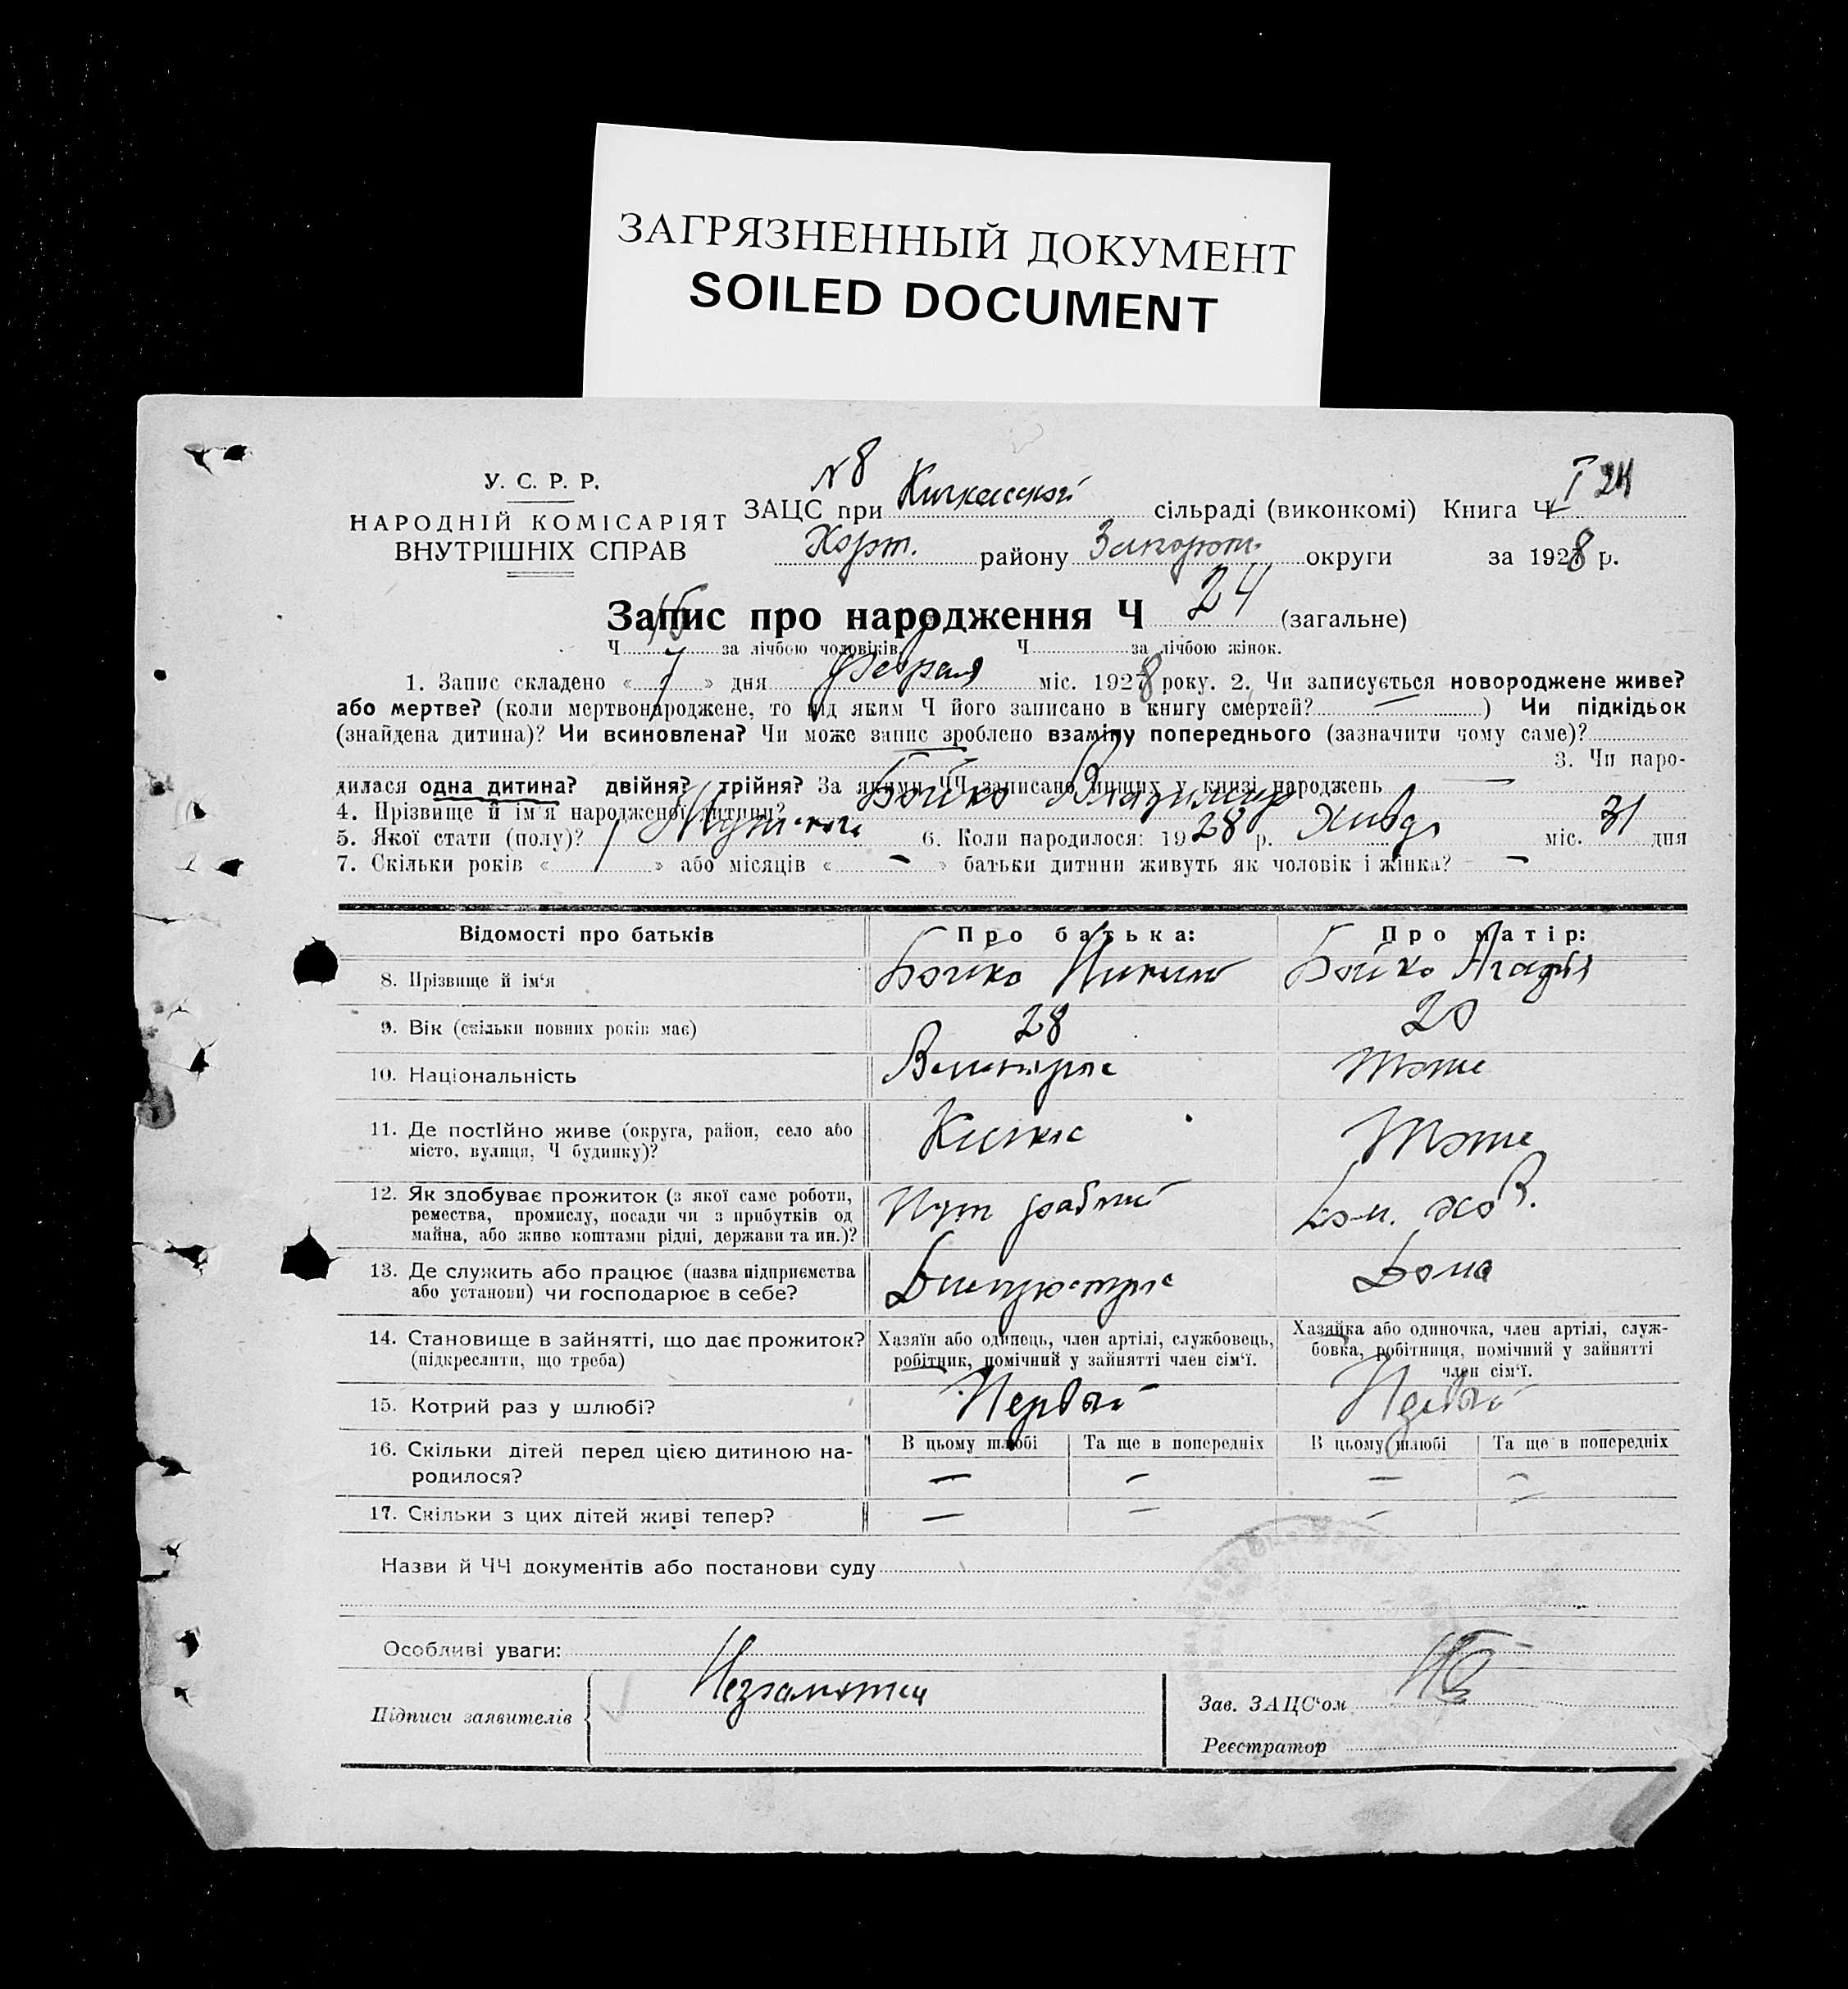 ЗАГРЯЗНЕННЫЙ ДОКУМЕНТ
SOILED DOCUMENT
У. С. Р. Р.
НАРОДНІЙ КОМІСАРІЯТ
ВНУТРІШНІХ СПРАВ
N 8
ЗАЦС при Кичкасской сільраді (виконкомі) Книга Ч I 24
Хорт. району Запорож. округи за 1928 р.
Запис про народження Ч 24 (загальне)
Ч 15 за лічбою чоловіків. Ч за лічбою жінок.
1. Запис складено « 7 » дня февраля міс. 1928 року. 2. Чи записується новороджене живе?
або мертве? (коли мертвонароджене, то під яким Ч його записано в книгу смертей? — ) Чи підкідьок
(знайдена дитина)? Чи всиновлена? Чи може запис зроблено взаміну попереднього (зазначити чому саме)?
3. Чи наро-
дилася одна дитина? двійня? трійня? За якими ЧЧ записано инших у книзі народжень —
4. Прізвище й ім'я народженої дитини? Бойко Владимир
5. Якої стати (полу)? Мужской 6. Коли народилося: 1928 р. Янвдр міс. 31 дня
7. Скільки років « 1 » або місяців « - » батьки дитини живуть як чоловік і жінка? -
Відомості про батьків Про батька: Про матір:
8. Прізвище й ім'я Бойко Никит Бойко Агафія
9. Вік (скільки повних років має) 28 20
10. Національність тоже
11. Де постійно живе (округа, район, село або Кичкас тоже
місто, вулиця, Ч будинку)?
12. Як здобуває прожиток (з якої саме роботи, рабочий Дом. хоз.
ремества, промислу, посади чи з прибутків од
майна, або живе коштами рідні, держави та ин.)?
13. Де служить або працює (назва підприємства Дома
або установи) чи господарює в себе?
14. Становище в зайнятті, що дає прожиток? Хазяїн або одинець, член артілі, службовець, Хазяйка або одиночка, член артілі, служ-
(підкреслити, що треба) робітник, помічний у зайнятті член сім'ї. бовка, робітниця, помічний у зайнятті
член сім'ї.
15. Котрий раз у шлюбі? Первый Первый
16. Скільки дітей перед цією дитиною на- В цьому шлюбі Та ще в попередніх В цьому шлюбі Та ще в попередніх
родилося? — - - -
17. Скільки з цих дітей живі тепер? — - - -
Назви й ЧЧ документів або постанови суду
Особливі уваги:
Підписи заявителів Неграмотен
Зав. ЗАЦС'ом
Реєстратор